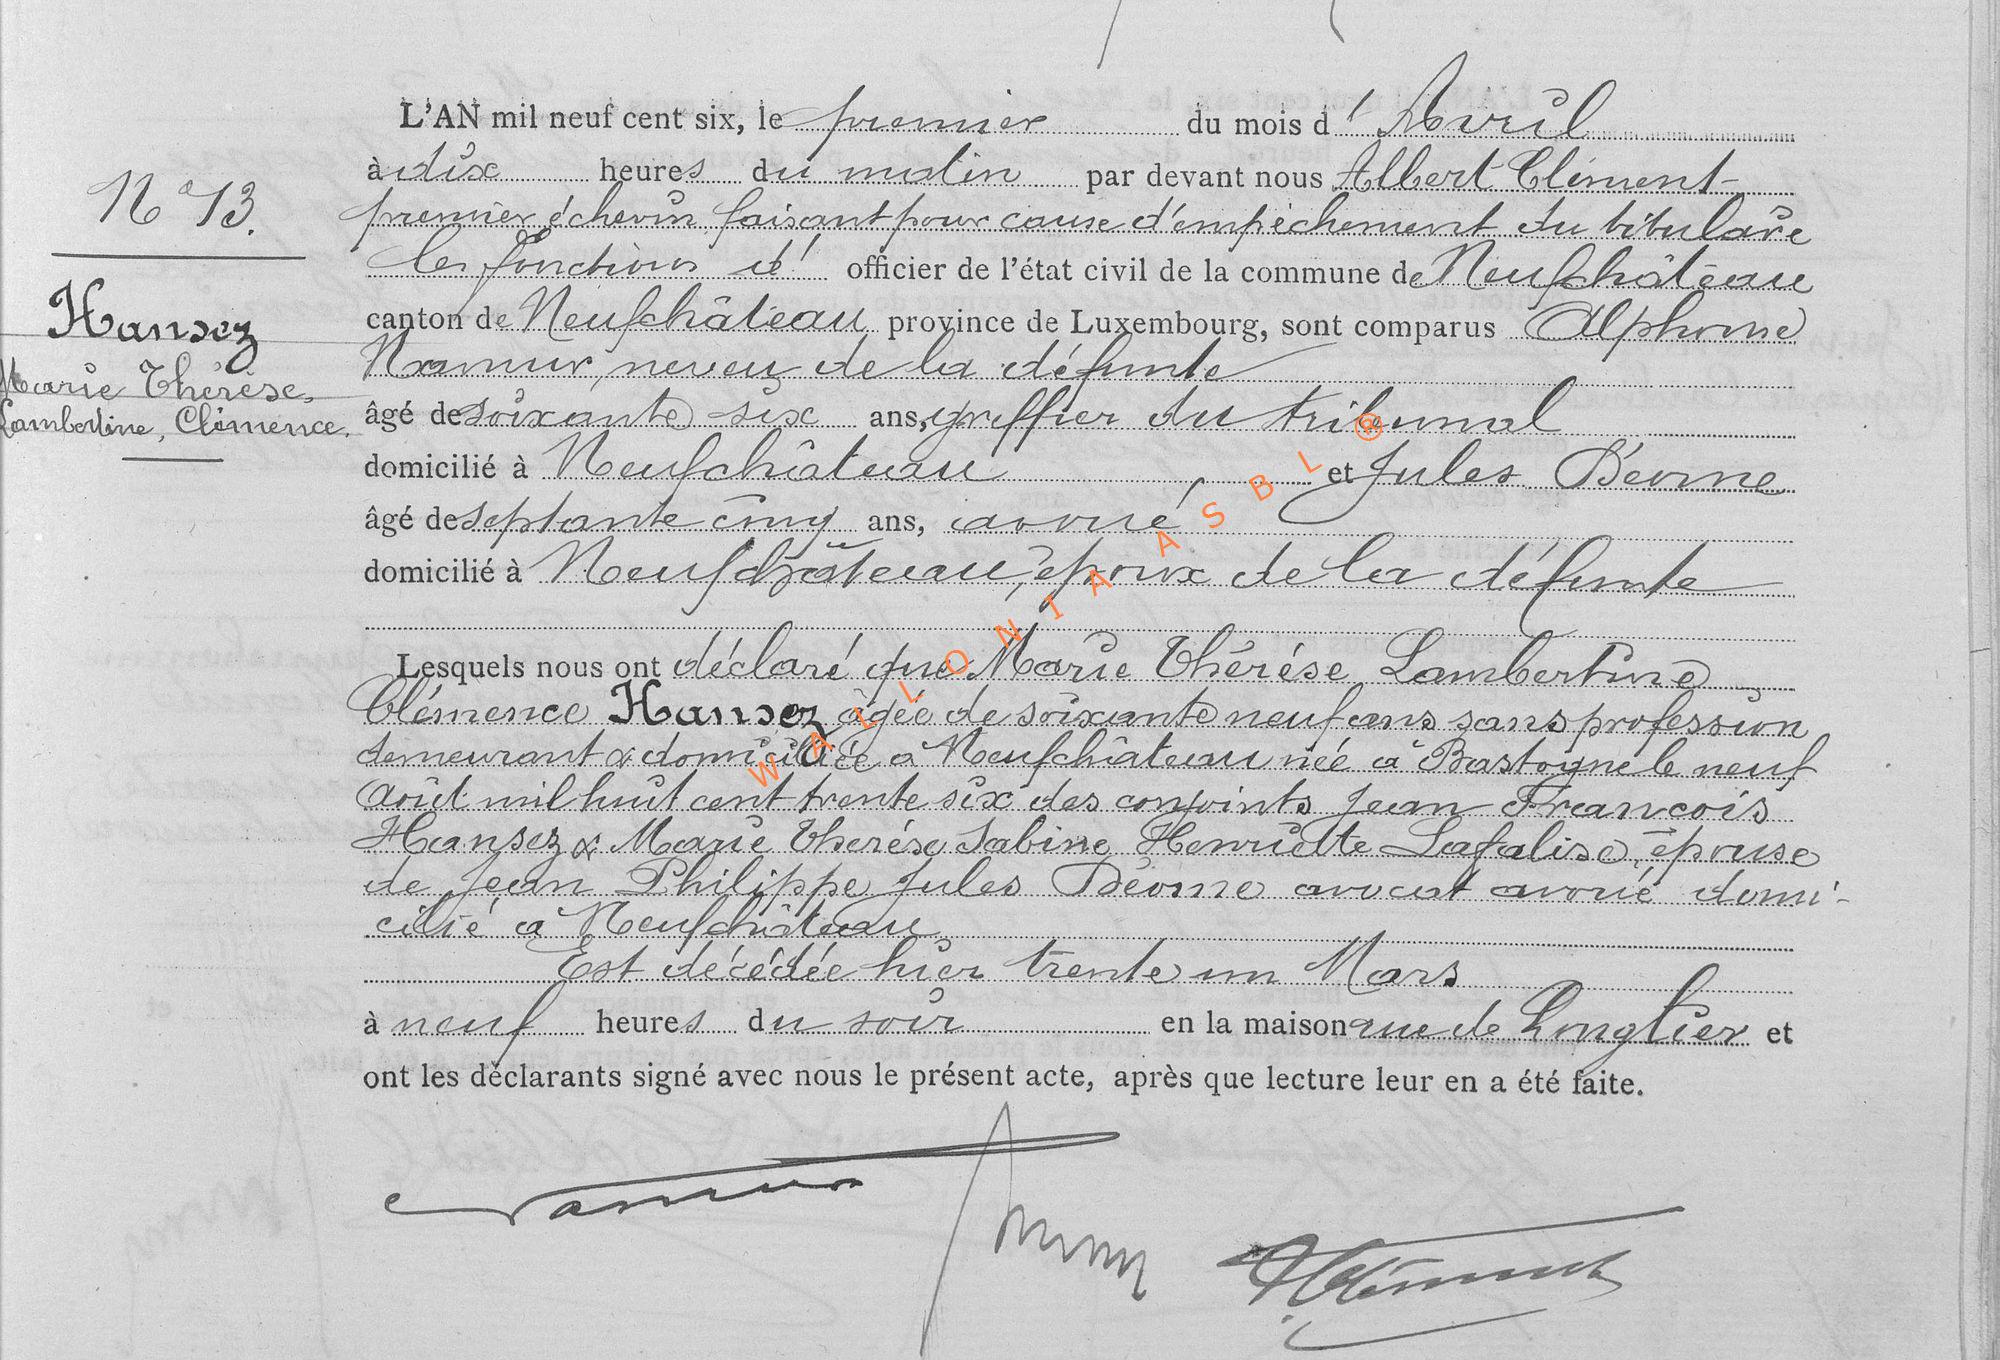 L'AN mil neuf cent six, le premier du mois d' Avril
à dix heures du matin par devant nous Albert Clément
premier échevin faisant pour cause d'empêchement du titulaire
les fonctions d' officier de l'état civil de la commune de Neufchâteau
canton de Neufchâteau province de Luxembourg, sont comparus Alphonse
Namur, neveu de la défunte
âgé de soixante six ans, greffier du tribunal
domicilié à Neufchâteau et Jules
âgé de septante cinq ans, avoué
domicilié à Neufchâteau, époux de la défunte
Lesquels nous ont déclaré que Marie Thérèse Lambertine
Clémence Hansez âgée de soixante neuf ans sans profession
demeurant & domiciliée à Neufchâteau née à Bastogne le neuf
Août mil huit cent trente six des conjoints Jean François
Hansez & Marie Therése Sabine Henriette Lafalise, épouse
de Jean Philippe Jules avocat avoué domi-
cilié à Neufchâteau
Est décédée hier trente un Mars
à neuf heures du soir en la maison rue de Longlier et
ont les déclarants signé avec nous le présent acte, après que lecture leur en a été faite.
N° 13.
Hansez
Marie Thérèse,
Lambertine, Clémence.
Namur
AClément
WALLONIA ASBL ®